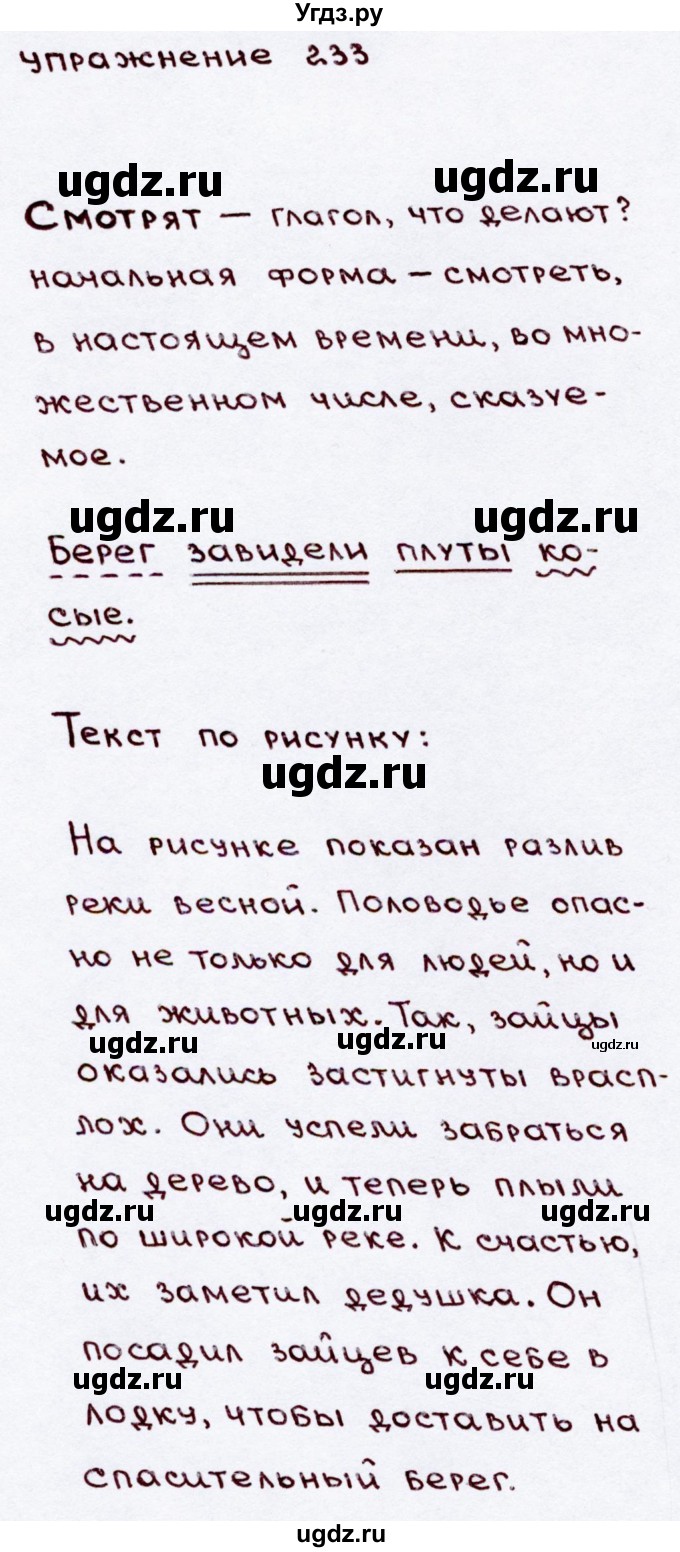 Угдз.ру
упражнение 233
ugdz.ru ugdz.ru
Смотрят – глагол, что делают?
начальная форма – смотреть,
в настоящем времени, во мно-
жественном числе, сказуе-
мое.
ugdz.ru ugdz.ru
Берег завидели плуты ко-
сые.
Текст по рисунку:
ugdz.ru
На рисунке показан разлив
реки весной. Половодье опас-
но не только для людей, но и
для животных. Так, зайцы
ugdz.ru ugdz.ru ugdz.ru
оказались застигнуты врасп-
лох. Они успели забраться
на дерево, и теперь плыли
ugdz.ru ugdz.ru ugdz.ru
по широкой реке. К счастью,
их заметил дедушка. Он
посадил зайцев к себе в
ugdz.ru ugdz.ru
лодку, чтобы доставить на
спасительный берег.
ugdz.ru